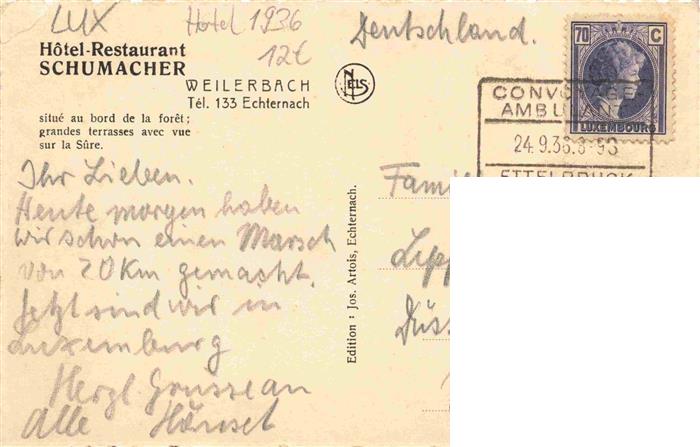 LUX Hotel 1936
12€
Deutschland.
Hôtel-Restaurant
SCHUMACHER
WEILERBACH
Tél. 133 Echternach
situé au bord de la forêt;
grandes terrasses avec vue
sur la Sûre.
NELS
70 C
LUXEMBOURG
24.9.36.
ETTELBRUCK
Ihr Lieben.
Heute morgen haben
wir schon einen Marsch
von 20 Km gemacht.
Jetzt sind wir in
Luxemburg
Herzl. Grüsse an
Alle
Edition : Jos. Artois, Echternach.